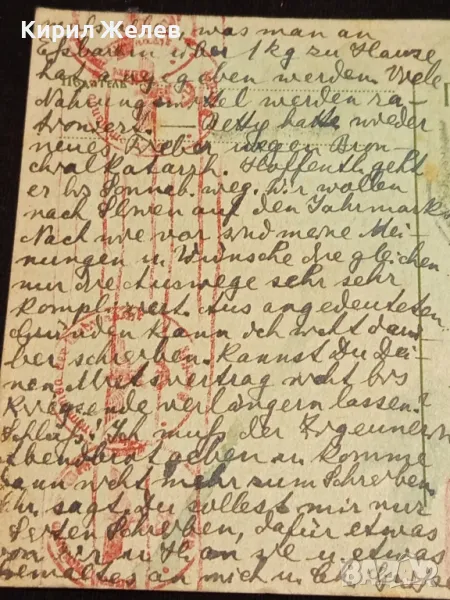 Кирил Желев
was man an
Essbarem über 1 kg zu Hause
hat angegeben werden. Viele
ПОДАТЕЛЬ
Nahrungsmittel werden ra-
tioniert. — Hetty hatte wieder
neues Fieber wegen Bron-
chialkatarrh. Hoffentl. geht
er bis Sonnab. weg. Wir wollen
nach auf den Jahrmarkt
Nach wie vor sind meine Mei-
nungen u. Wünsche die gleichen
nur die Auswege sehr sehr
kompliziert. Aus angedeuteten
Gründen kann ich nicht darü-
ber schreiben. Kannst Du Dei-
nen Mietsvertrag nicht bis
Kriegsende verlängern lassen?
Schluss! Ich muß der Zigeunerin
Abendbrot geben u. komme
dann nicht mehr zum Schreiben.
sagt, Du sollest mir nur
Seiten schreiben, dafür etwas
von u. etwas
an mich u.
bazar